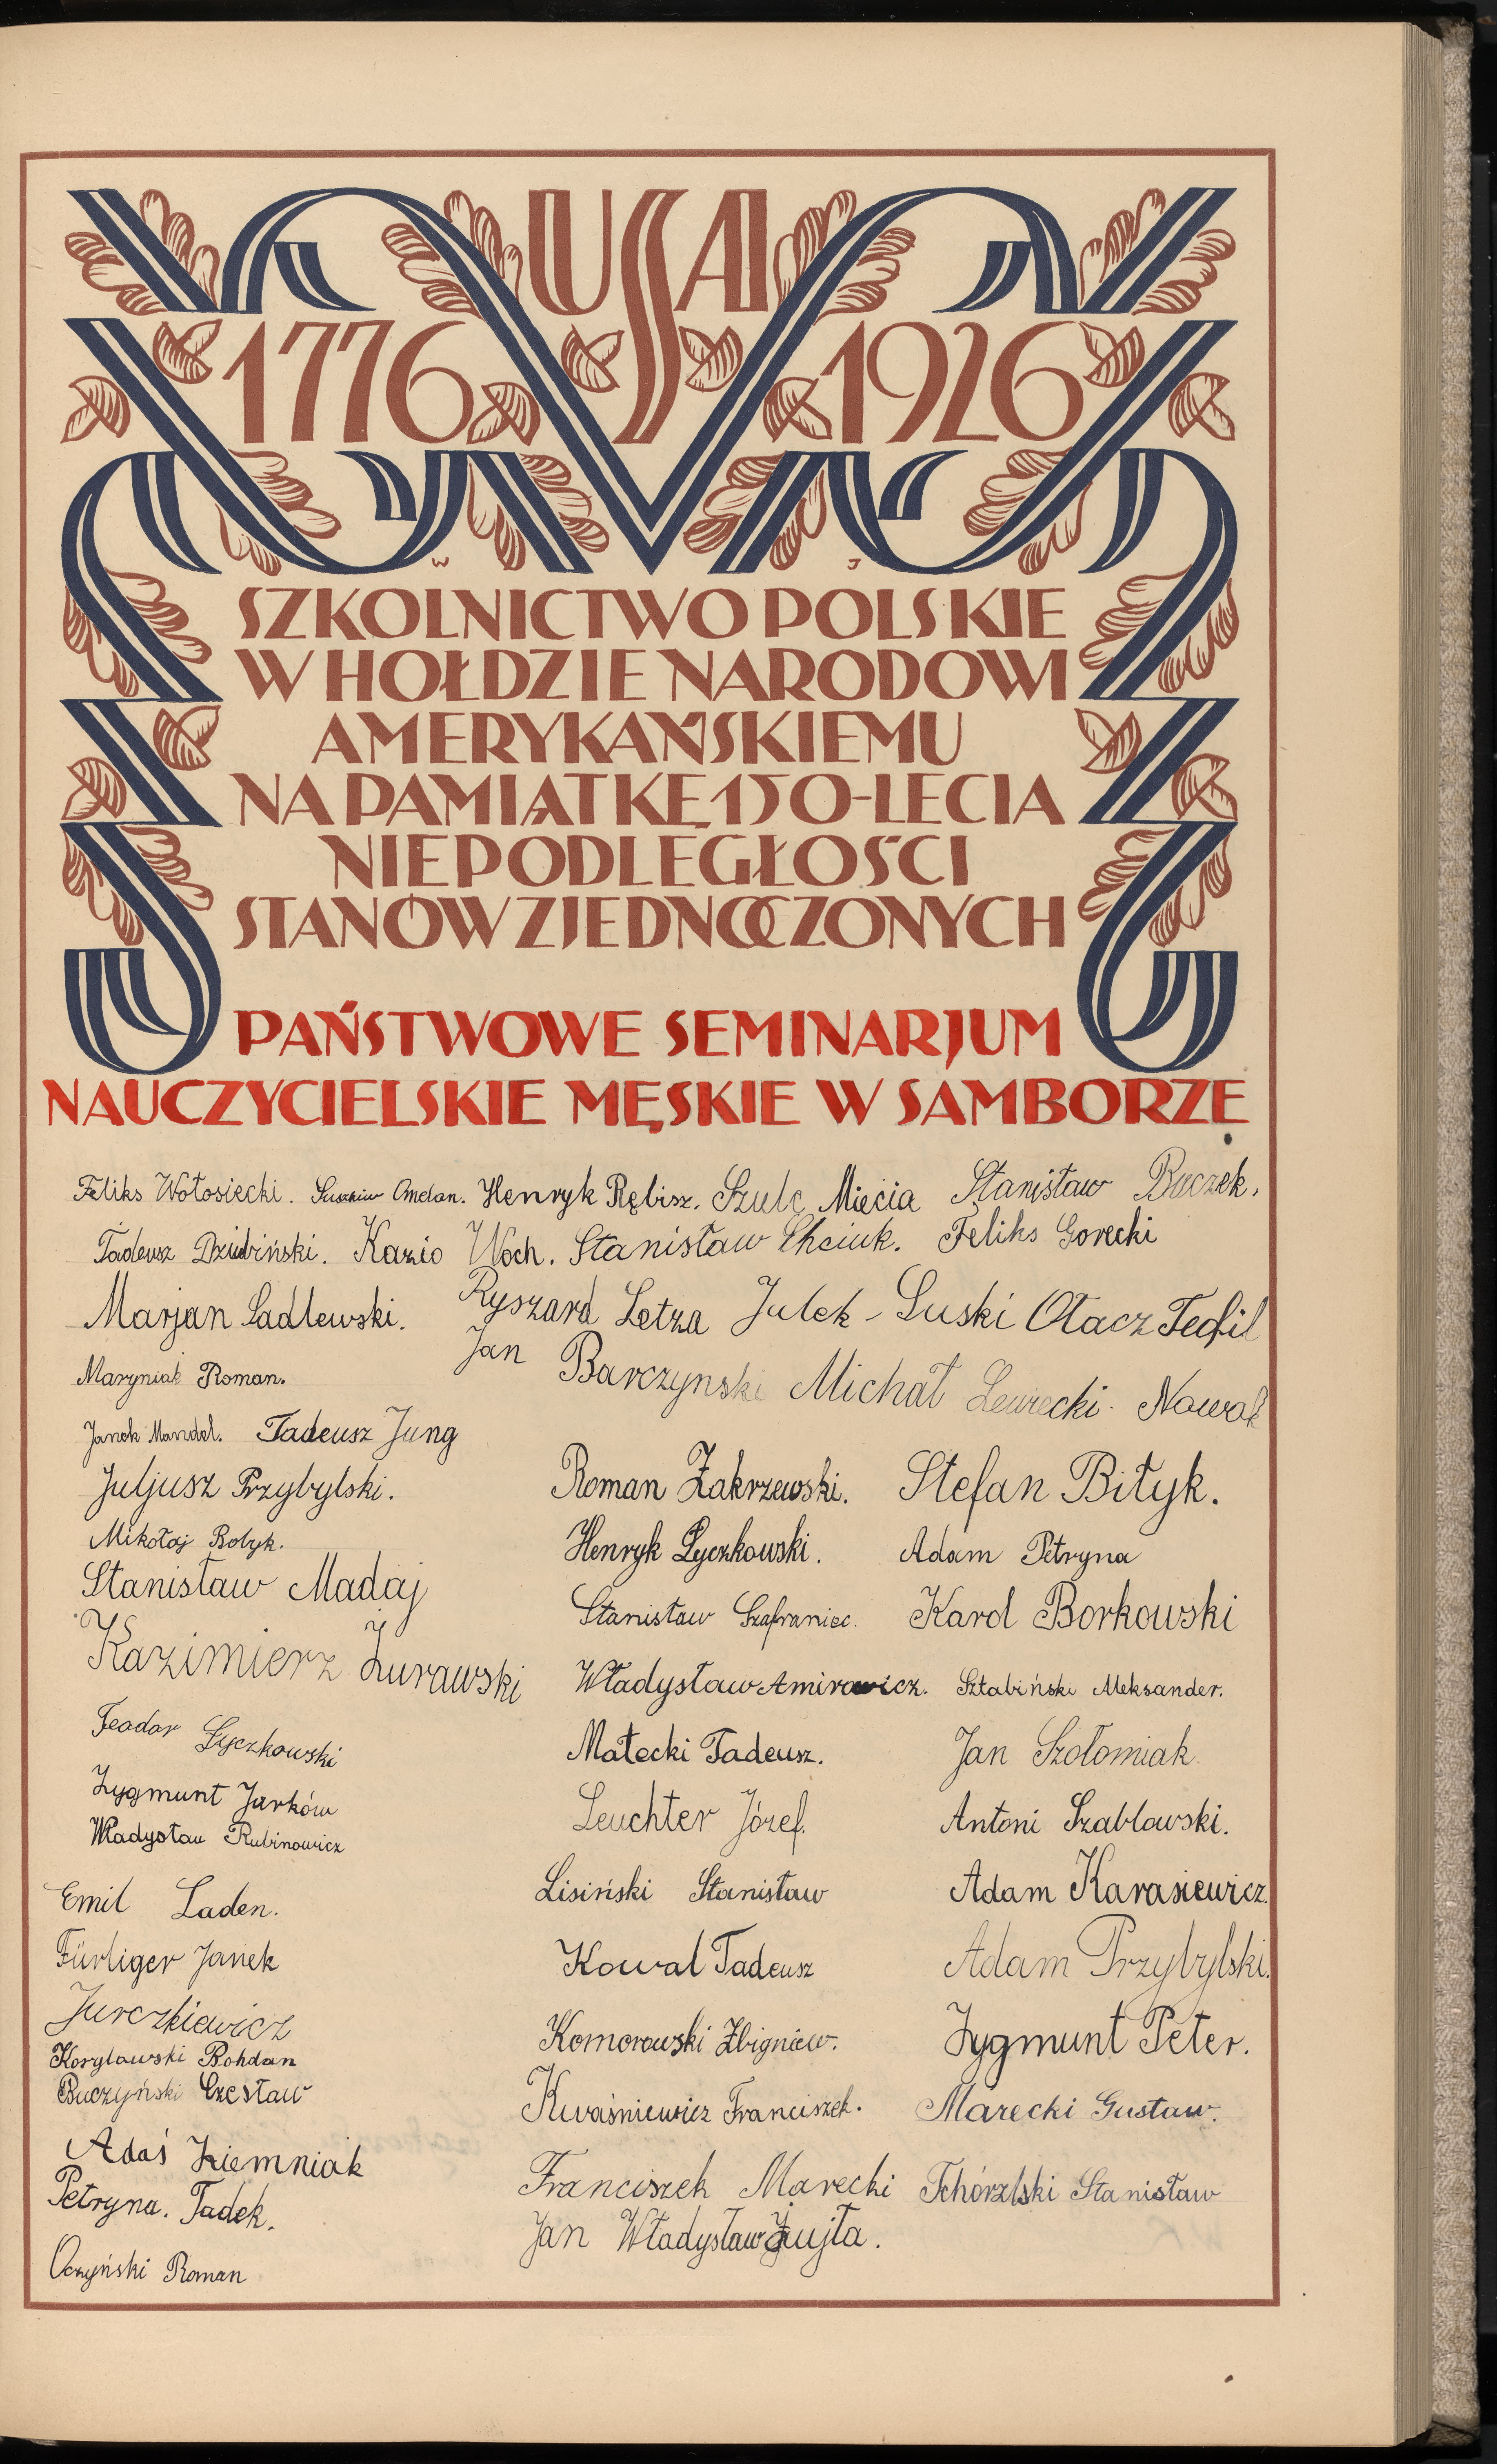 USA
1776 1926
W J
SZKOLNICTWO POLSKIE
W HOŁDZIE NARODOWI
AMERYKAŃSKIEMU
NA PAMIĄTKĘ 150-LECIA
NIEPODLEGŁOŚCI
STANÓW ZJEDNOCZONYCH
PAŃSTWOWE SEMINARJUM
NAUCZYCIELSKIE MĘSKIE W SAMBORZE
Feliks Wołosiecki. Henryk Rębisz. Szulc Miecia Stanisław Buczek.
Tadeusz Dziubiński. Kazio Woch. Stanisław Chciuk. Feliks Gorecki
Marjan Sadlewski. Ryszard Letza Julek - Łuski Otacz Teofil
Maryniak Roman. Jan Barczynski Michał Lewecki. Nowak
Janek Mandel. Tadeusz Jung
Juljusz Przybylski. Roman Zakrzewski. Stefan Bityk.
Mikołaj Bolyk. Henryk Łyczkowski. Adam Petryna
Stanisław Madaj Stanisław Szafraniec. Karol Borkowski
Kazimierz Żurawski Władysław Amirowicz. Sztabiński Aleksander.
Teodor Łyczkowski Małecki Tadeusz. Jan Szołomiak
Zygmunt Jarków Leuchter Józef. Antoni Szablowski.
Władysław Rubinowicz
Emil Laden. Lisiński Stanisław Adam Karasiewicz.
Fürliger Janek Kowal Tadeusz Adam Przybylski.
Jurczkiewicz Komorowski Zbigniew. Zygmunt Peter.
Korylowski Bohdan
Buczyński Czesław Kwaśniewicz Franciszek. Marecki Gustaw.
Adaś Ziemniak Franciszek Marecki Tchórzlski Stanisław
Petryna. Tadek. Jan Władysław Zujta.
Oczyński Roman